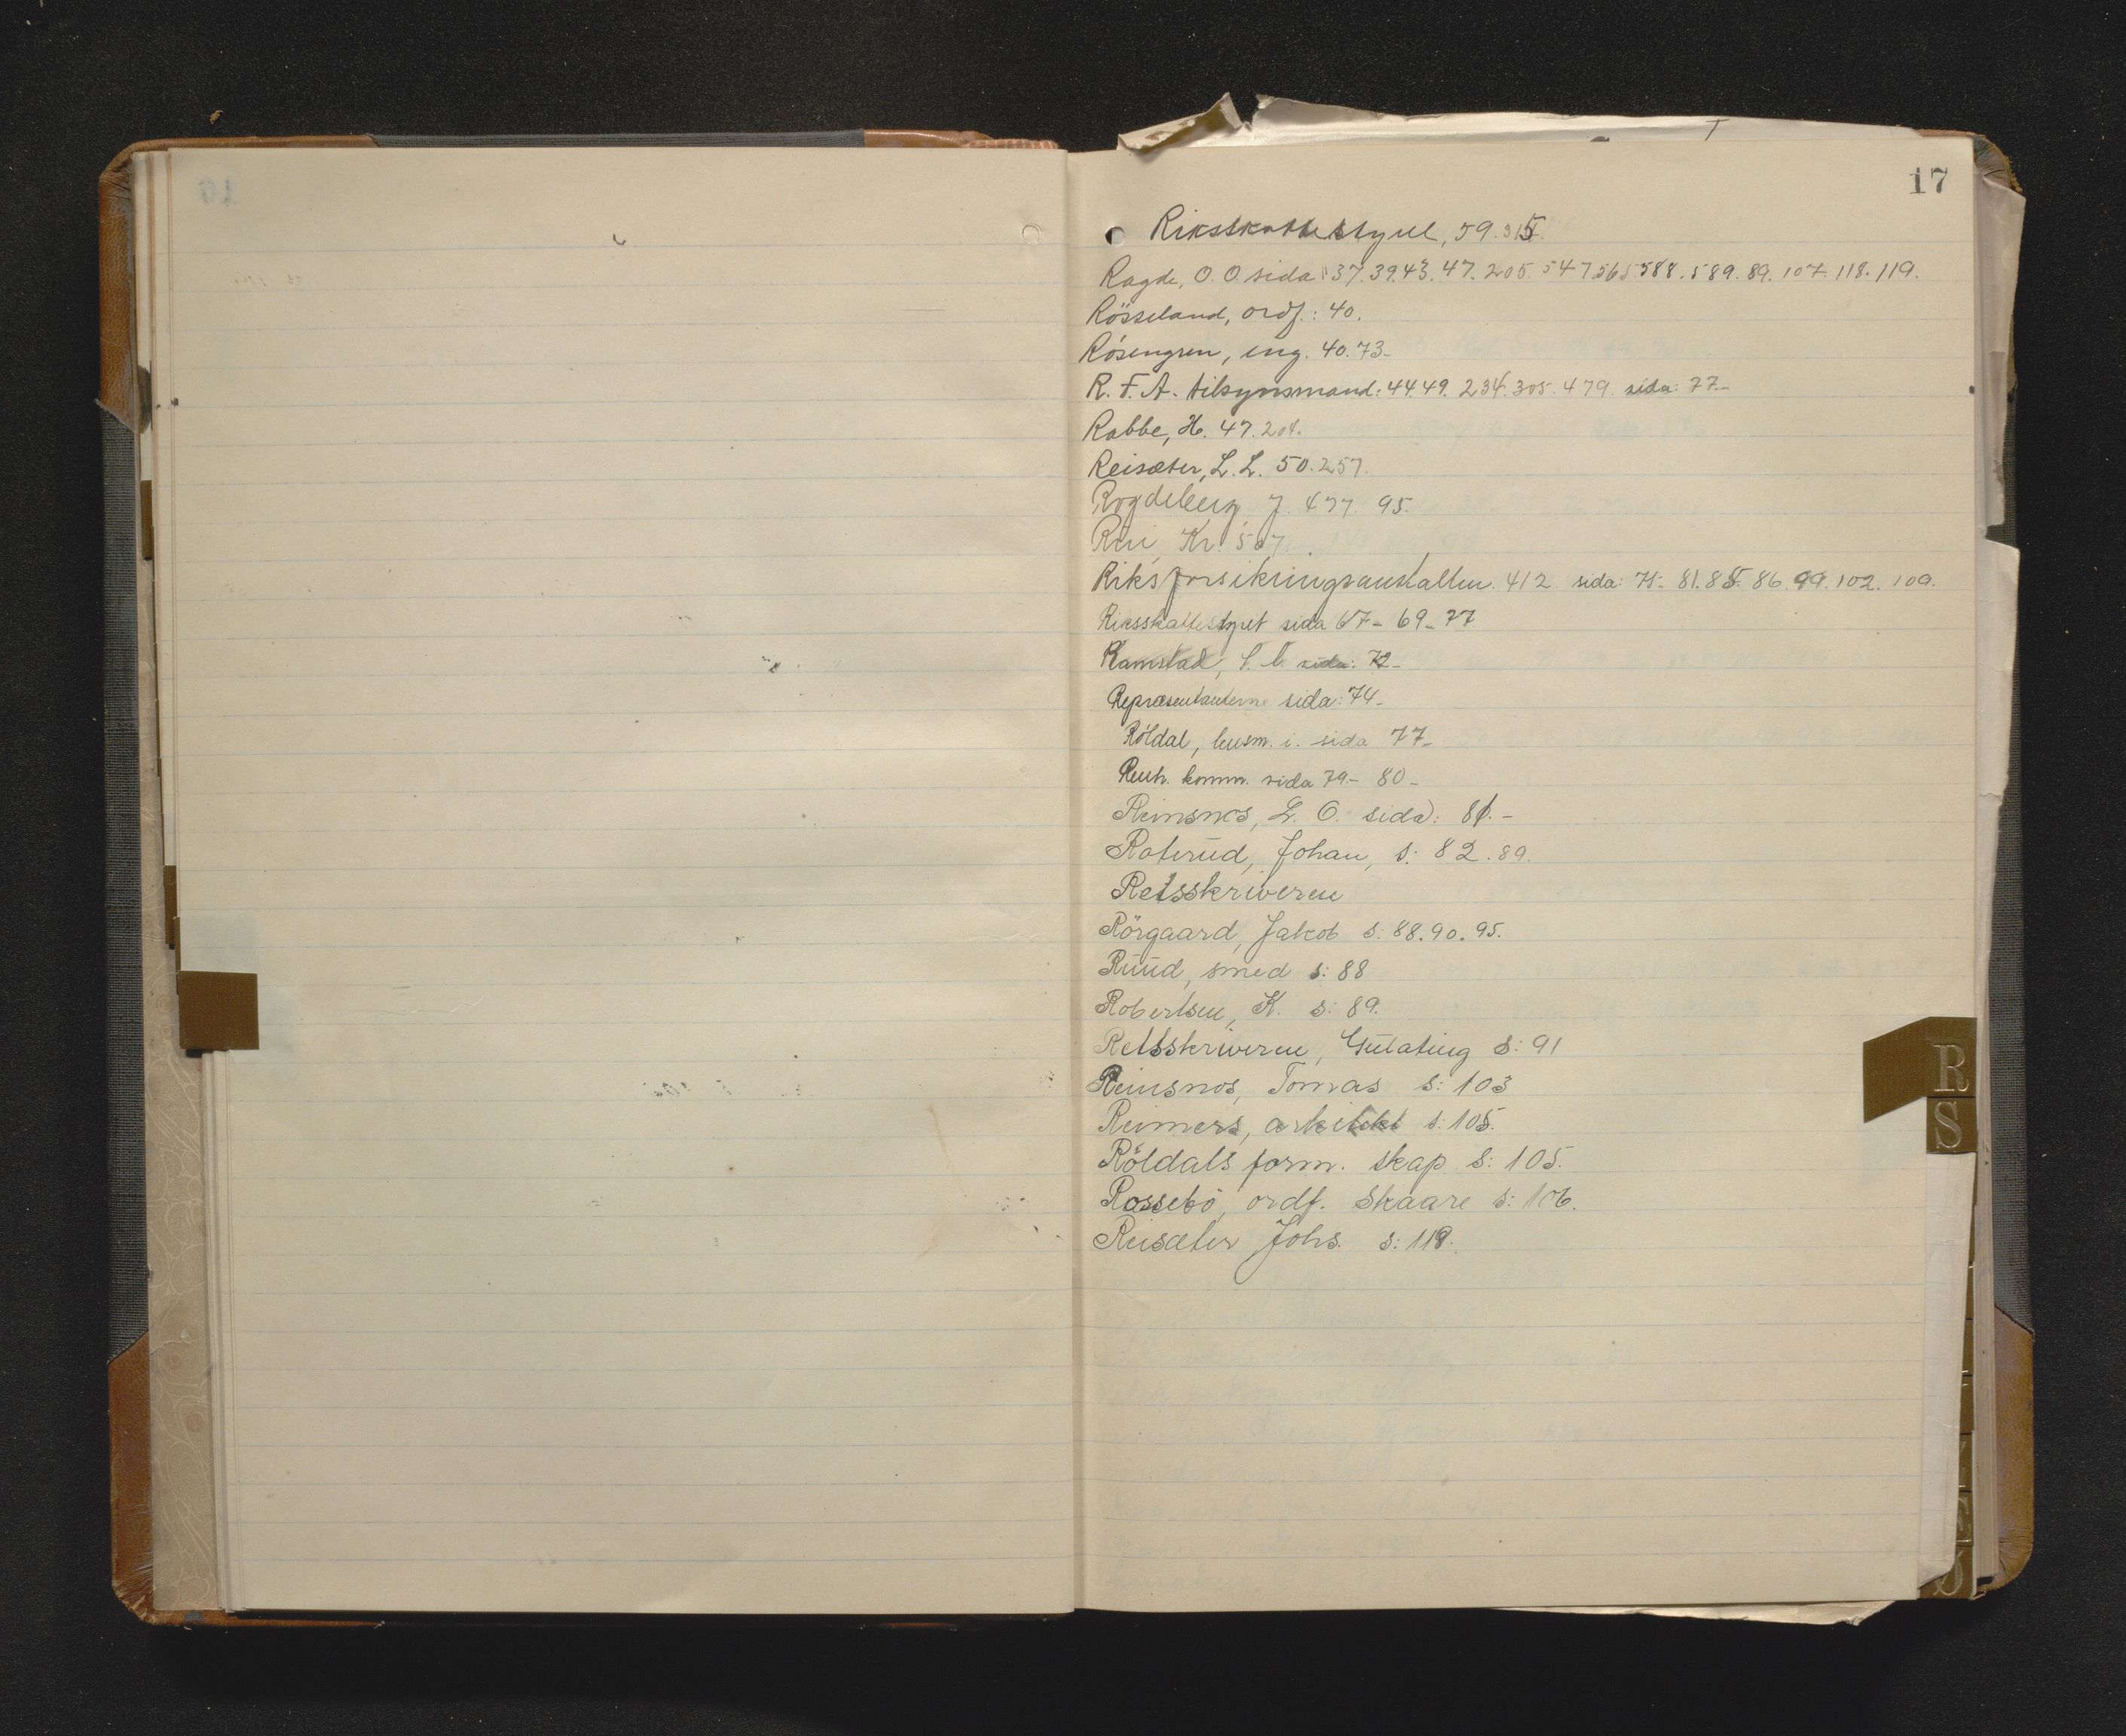 17
Riksskattestyret, 59. 315.
Ragde, O. O. sida 37. 39. 43. 47. 205. 547 565 588. 589. 89. 107. 118. 119.
Rösseland, ordf.: 40.
Rösengren, ing. 40. 73-
R. F. A. tilsynsmand: 44. 49. 234. 305. 479. sida: 77-
Rabbe, H. 47. 204.
Reisæter, L. L. 50. 257.
Rogdeberg J. 477 95.
Kr. 507.
Riksforsikringsanstalten. 412 sida: 75- 81. 85. 86. 99. 102. 109.
Riksskattestyret sida 67- 69- 77
Ramstad, sida: 72-
Repræsentanterne sida: 74-
Röldal, lensm. i. sida 77-
komm. sida 79- 80-
Reinsnos, L. O. sida: 81.-
Roterud, Johan, s: 82. 89.
Retsskriveren
Rörgaard, Jakob s: 88. 90. 95.
Ruud, smed s: 88
Robertsen, K. s: 89.
Retsskriveren, Gulating s: 91
Reinsnos, Tomas s: 103
Reimers, arkitekt s: 105.
Röldals form. skap s: 105.
Rossebö, ordf. Skaare s: 106.
Reisæter Johs. s: 119.
R
S